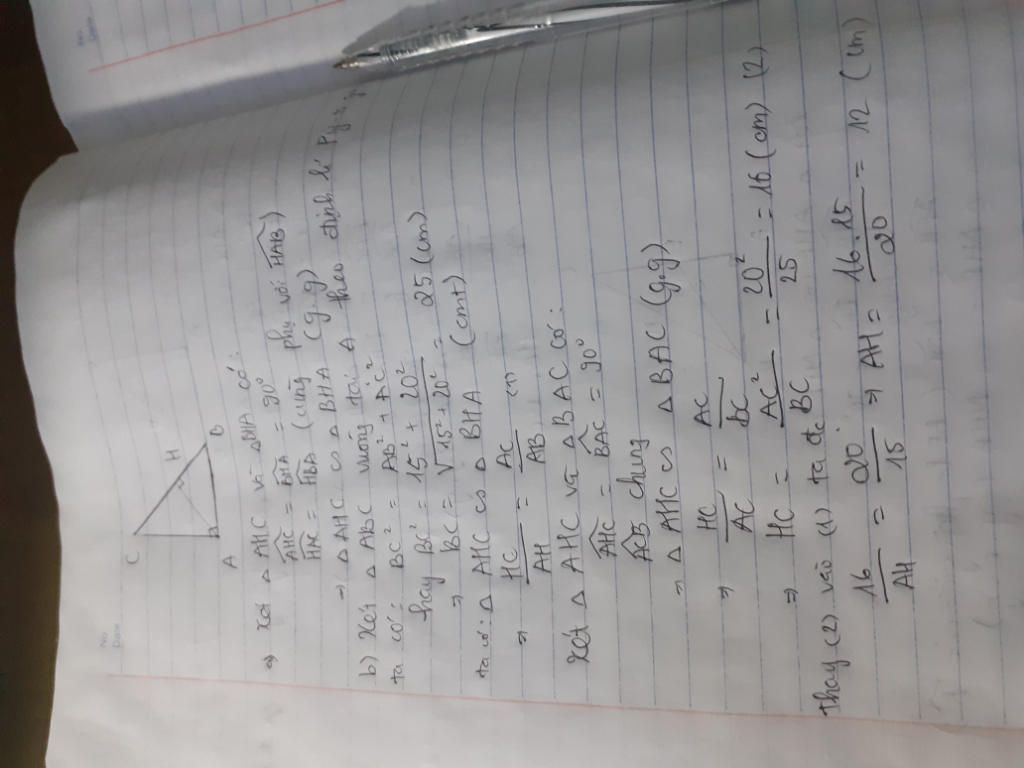 C
H
A
B
⇒ Xét Δ AHC và ΔBHA có:
AHC = BHA = 90°
HAC = HBA (cùng phụ với HAB)
⇒ Δ AHC ∽ Δ BHA (g.g)
b) Xét Δ ABC vuông tại A theo định lí Py
ta có: BC² = AB² + AC²
hay BC² = 15² + 20²
⇒ BC = √15² + 20² = 25 (cm)
ta có: Δ AHC ∽ Δ BHA (cmt)
⇒ HC/AH = AC/AB (1)
Xét Δ AHC và Δ BAC có:
AHC = BAC = 90°
ACB chung
⇒ Δ AHC ∽ Δ BAC (g.g)
⇒ HC/AC = AC/BC
⇒ HC = AC²/BC = 20²/25 = 16 (cm) (2)
Thay (2) vào (1) ta đc
16/AH = 20/15 ⇒ AH = 16.15/20 = 12 (cm)